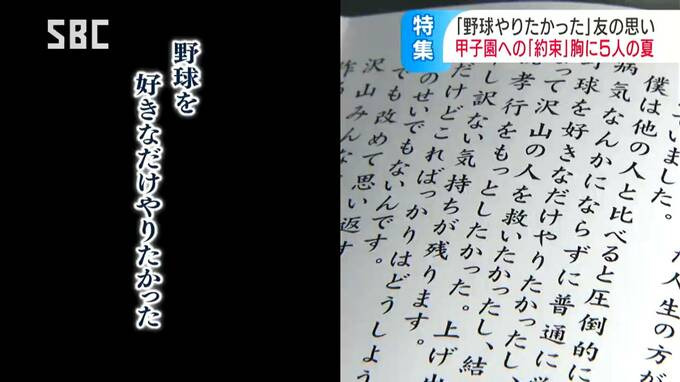 SBC
野球を
好きなだけやりたかった
特集
「野球やりたかった」友の思い
甲子園への「約束」胸に5人の夏
ていました。
た人生の方が
僕は他の人と比べると圧倒的に
病気なんかにならずに普通に
野球を好きなだけやりたかったし、
って沢山の人を救いたかったし、結
孝行をもっとしたかった。上げ出
し訳ない気持ちが残ります。
だけどこればっかりはどうしよう
のせいでもないんです。
でも改めて思い返す
沢山みんな